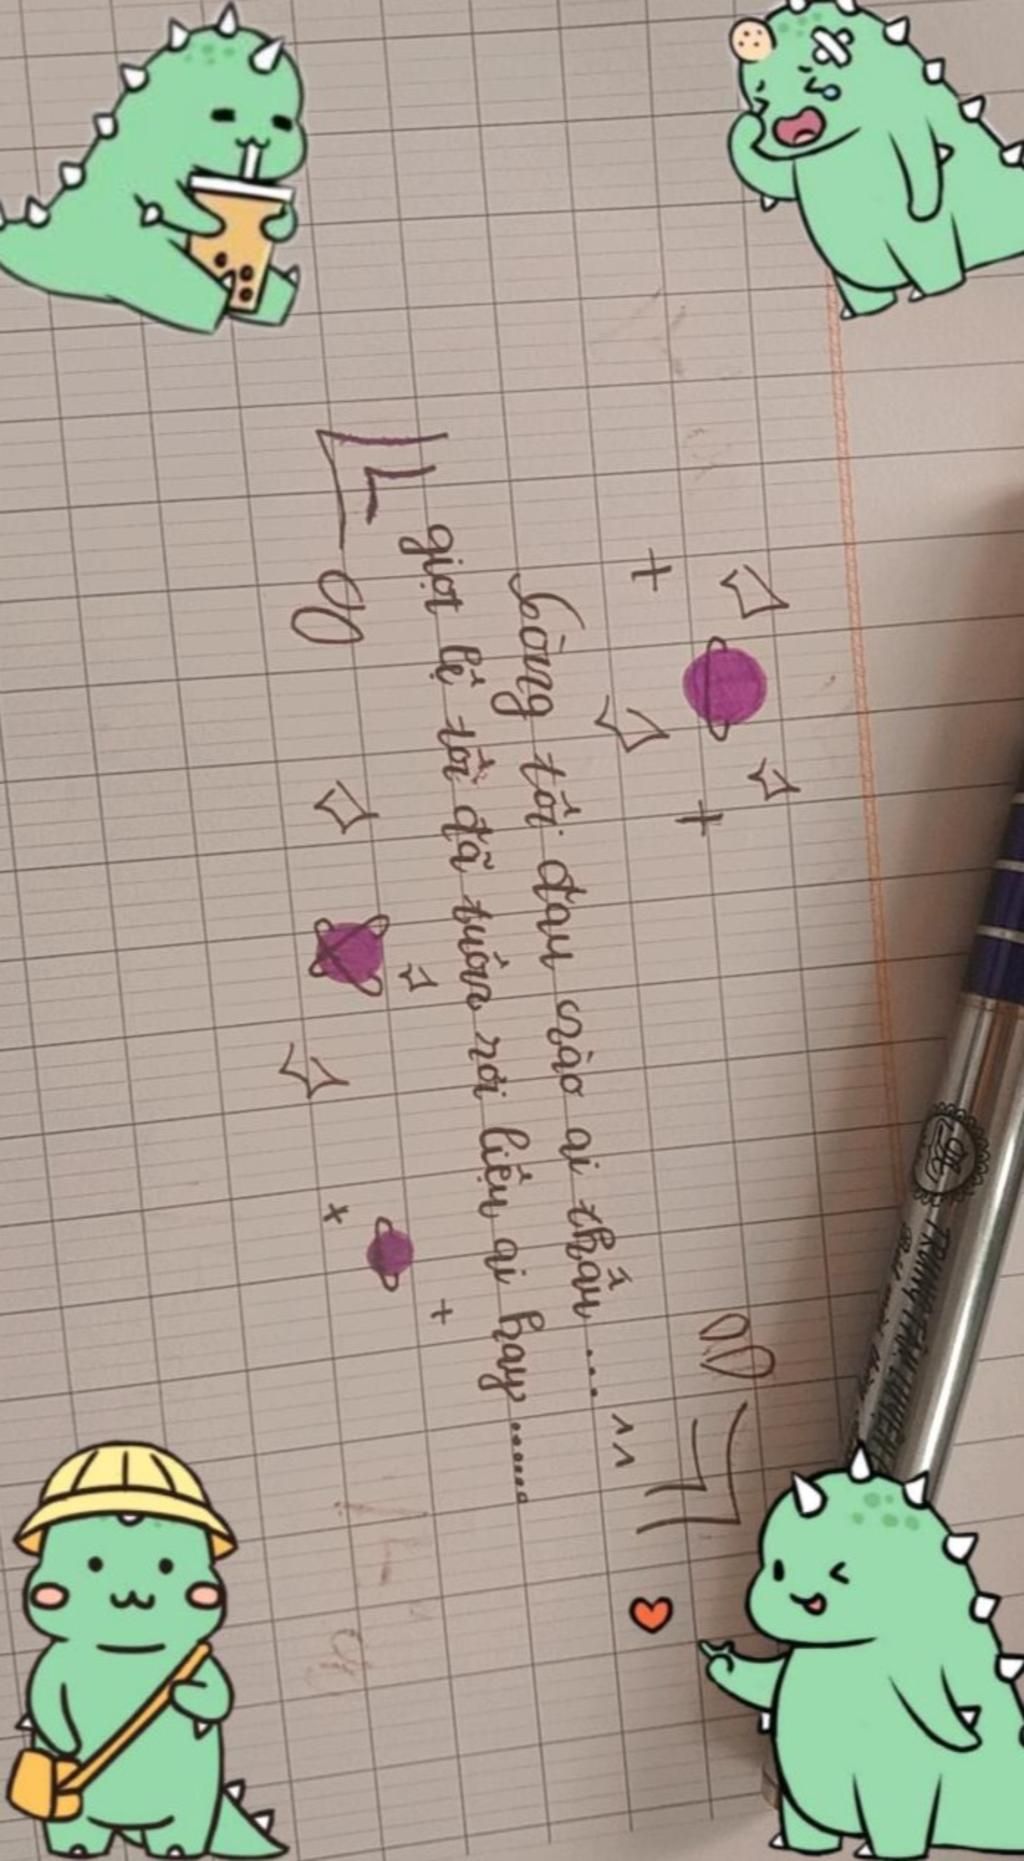 Lòng tôi đau nào ai thấu ....
giọt lệ tôi đã tuôn rơi liệu ai hay ......
TRUNG TÂM LUYỆN